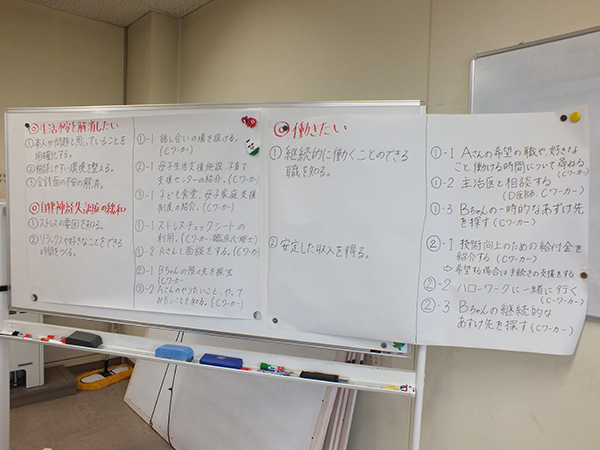 ◎生活の困難を解消したい
①本人が問題と思っていることを
明確化する。
②相談しやすい環境を整える。
③会計面の不安の解消。
◎自律神経失調症の緩和
①ストレスの要因を知る。
②リラックスや好きなことをできる
時間をつくる。
①-1 話し合いの場を設ける。
(Cワーカー)
②-1 母子生活支援施設、子育て
支援センターの紹介。(Cワーカー)
③-1 子ども食堂、母子家庭支援
制度の紹介。(Cワーカー)
①-1 ストレスチェックシートの
利用。(Cワーカー・臨床心理士)
①-2 Aさんと面談をする。(Cワーカー)
②-1 Bちゃんの預け先を探す
(Cワーカー)
②-2 Aさんのやりたいこと、やって
おたいことを知る。(Cワーカー)
◎働きたい
①継続的に働くことのできる
職を知る。
②安定した収入を得る。
①-1 Aさんの希望の職や、好きな
こと働ける時間について尋ねる
(Cワーカー)
①-2 主治医と相談する
(D医師、Cワーカー)
①-3 Bちゃんの一時的なあずけ先
を探す(Cワーカー)
②-1 技術向上のための給付金を
紹介する(Cワーカー)
⇨希望する場合は手続きの支援をする
②-2 ハローワークに一緒に行く
(Cワーカー)
②-3 Bちゃんの継続的な
あずけ先を探す(Cワーカー)